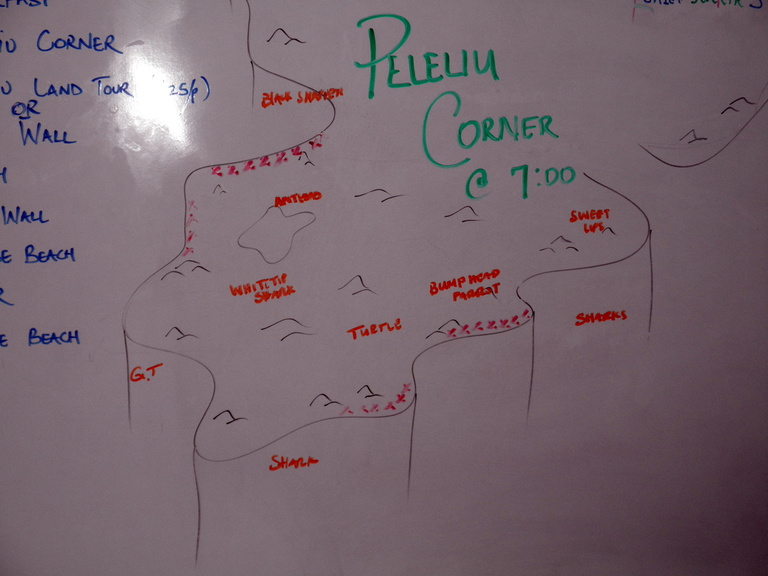 CORNER
LAND TOUR
OR
WALL
WALL
BEACH
BEACH
PELELIU
CORNER
@ 7:00
BLACK SNAPPER
ANTLUO
SWEET
LIPS
WHITE TIP
SHARK
BUMPHEAD
PARROT
TURTLE
SHARKS
G.T
SHARK